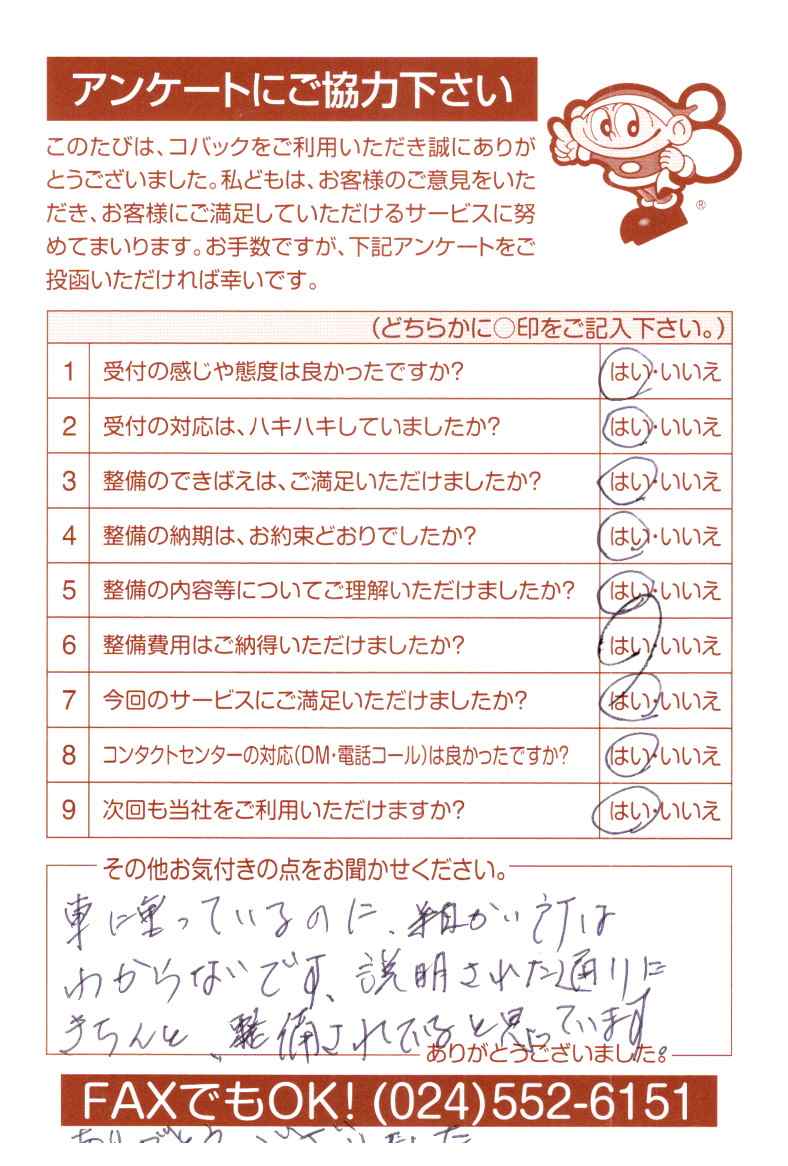 アンケートにご協力下さい
このたびは、コバックをご利用いただき誠にありが
とうございました。私どもは、お客様のご意見をいた
だき、お客様にご満足していただけるサービスに努
めてまいります。お手数ですが、下記アンケートをご
投函いただければ幸いです。
®
(どちらかに○印をご記入下さい。)
1 受付の感じや態度は良かったですか? はい・いいえ
2 受付の対応は、ハキハキしていましたか? はい・いいえ
3 整備のできばえは、ご満足いただけましたか? はい・いいえ
4 整備の納期は、お約束どおりでしたか? はい・いいえ
5 整備の内容等についてご理解いただけましたか? はい・いいえ
6 整備費用はご納得いただけましたか? はい・いいえ
7 今回のサービスにご満足いただけましたか? はい・いいえ
8 コンタクトセンターの対応(DM・電話コール)は良かったですか? はい・いいえ
9 次回も当社をご利用いただけますか? はい・いいえ
その他お気付きの点をお聞かせください。
車に乗っているのに、細かい所は
わからないです、説明された通りに
きちんと、整備されていると思っています
ありがとうございました。
FAXでもOK! (024)552-6151
ありがとうございました